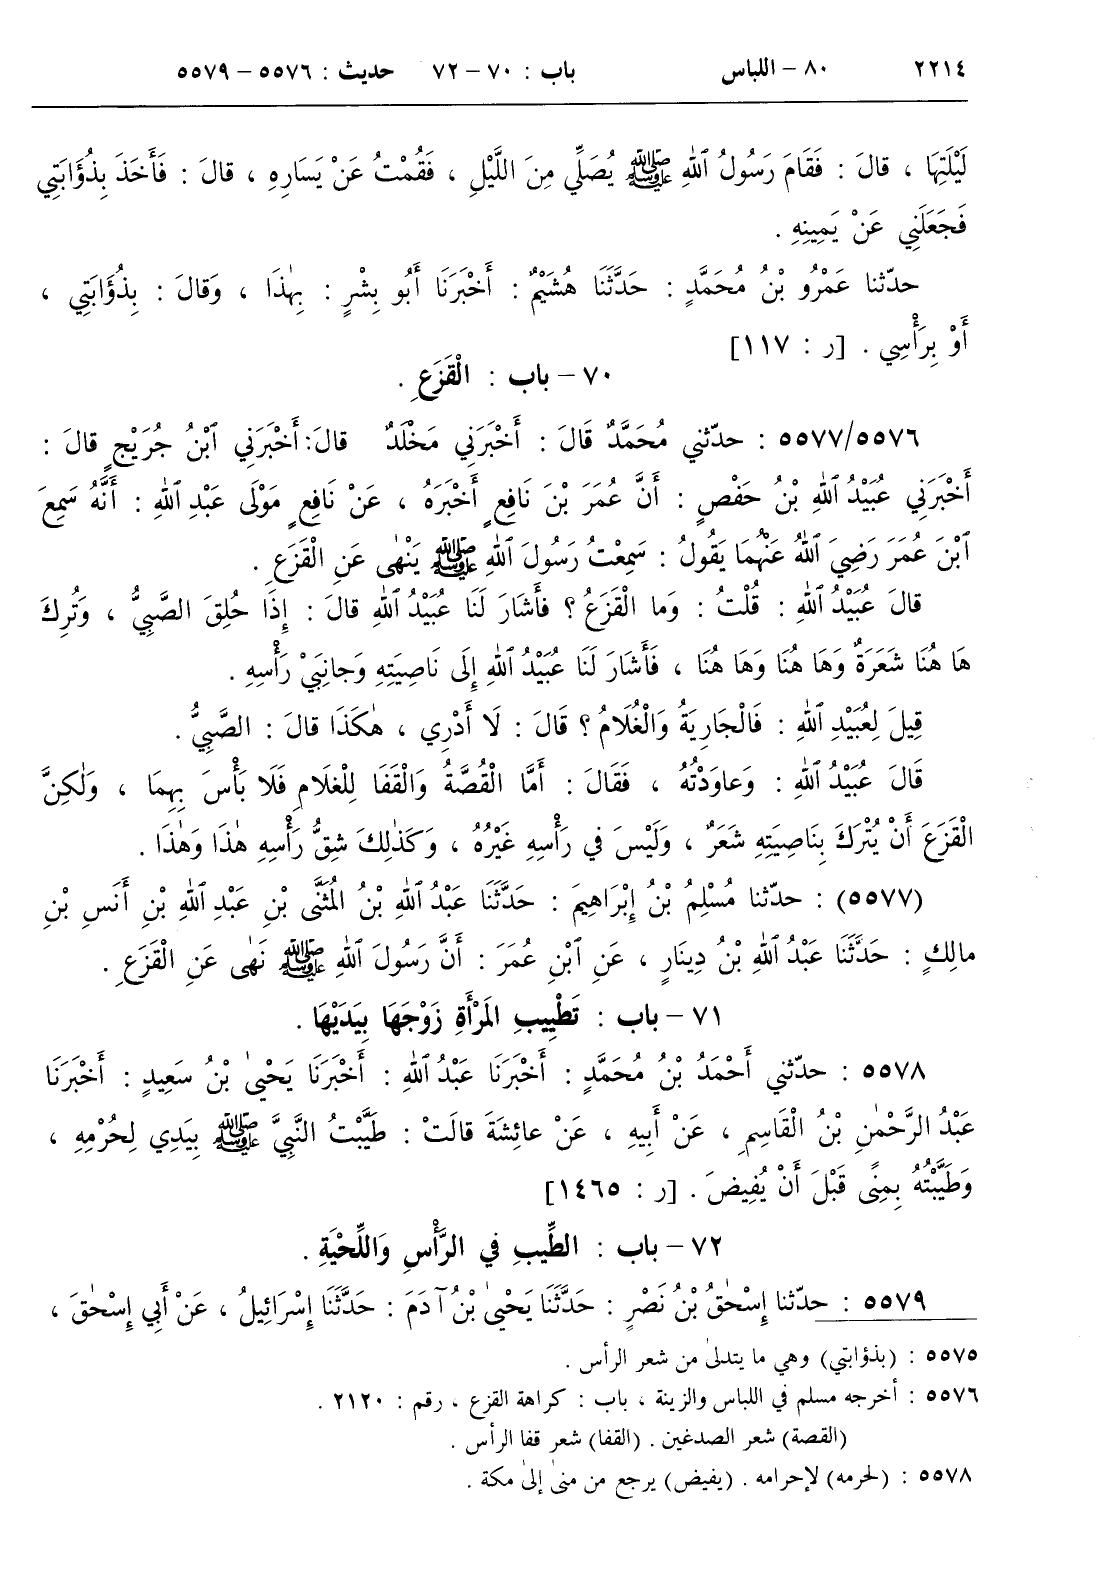 ٢٢١٤ ٨٠ – اللباس باب : ٧٠ – ٧٢ حديث : ٥٥٧٦ – ٥٥٧٩
لَيْلَتِهَا ، قالَ : فَقَامَ رَسُولُ ٱللهِ ﷺ يُصَلِّي مِنَ اللَّيْلِ ، فَقُمْتُ عَنْ يَسَارِهِ ، قالَ : فَأَخَذَ بِذُؤَابَتِي
فَجَعَلَنِي عَنْ يَمِينِهِ .
حدّثنا عَمْرُو بْنُ مُحَمَّدٍ : حَدَّثَنَا هُشَيْمٌ : أَخْبَرَنَا أَبُو بِشْرٍ : بِهٰذَا ، وَقالَ : بِذُؤَابَتِي ،
أَوْ بِرَأْسِي . [ر : ١١٧]
٧٠ – باب : الْقَزَعِ .
٥٥٧٧/٥٥٧٦ : حدّثني مُحَمَّدٌ قَالَ : أَخْبَرَنِي مَخْلَدٌ قالَ : أَخْبَرَنِي ٱبْنُ جُرَيْجٍ قالَ :
أَخْبَرَنِي عُبَيْدُ ٱللهِ بْنُ حَفْصٍ : أَنَّ عُمَرَ بْنَ نَافِعٍ أَخْبَرَهُ ، عَنْ نَافِعٍ مَوْلَى عَبْدِ ٱللهِ : أَنَّهُ سَمِعَ
ٱبْنَ عُمَرَ رَضِيَ ٱللهُ عَنْهُمَا يَقُولُ : سَمِعْتُ رَسُولَ ٱللهِ ﷺ يَنْهٰى عَنِ الْقَزَعِ .
قالَ عُبَيْدُ ٱللهِ : قُلْتُ : وَما الْقَزَعُ ؟ فَأَشَارَ لَنَا عُبَيْدُ ٱللهِ قالَ : إِذَا حُلِقَ الصَّبِيُّ ، وَتُرِكَ
هَا هُنَا شَعَرَةٌ وَهَا هُنَا وَهَا هُنَا ، فَأَشَارَ لَنَا عُبَيْدُ ٱللهِ إِلَى نَاصِيَتِهِ وَجانِبَيْ رَأْسِهِ .
قِيلَ لِعُبَيْدِ ٱللهِ : فَالْجَارِيَةُ وَالْغُلَامُ ؟ قَالَ : لَا أَدْرِي ، هٰكَذَا قالَ : الصَّبِيُّ .
قَالَ عُبَيْدُ ٱللهِ : وَعاوَدْتُهُ ، فَقَالَ : أَمَّا الْقُصَّةُ وَالْقَفَا لِلْغُلَامِ فَلَا بَأْسَ بِهِمَا ، وَلٰكِنَّ
الْقَزَعَ أَنْ يُتْرَكَ بِنَاصِيَتِهِ شَعَرٌ ، وَلَيْسَ في رَأْسِهِ غَيْرُهُ ، وَكَذٰلِكَ شِقُّ رَأْسِهِ هٰذَا وَهٰذَا .
(٥٥٧٧) : حدّثنا مُسْلِمُ بْنُ إِبْرَاهِيمَ : حَدَّثَنَا عَبْدُ ٱللهِ بْنُ الْمُثَنَّى بْنِ عَبْدِ ٱللهِ بْنِ أَنَسِ بْنِ
مالِكٍ : حَدَّثَنَا عَبْدُ ٱللهِ بْنُ دِينَارٍ ، عَنِ ٱبْنِ عُمَرَ : أَنَّ رَسُولَ ٱللهِ ﷺ نَهٰى عَنِ الْقَزَعِ .
٧١ – باب : تَطْيِيبِ المَرْأَةِ زَوْجَهَا بِيَدَيْهَا .
٥٥٧٨ : حدّثني أَحْمَدُ بْنُ مُحَمَّدٍ : أَخْبَرَنَا عَبْدُ ٱللهِ : أَخْبَرَنَا يَحْيىٰ بْنُ سَعِيدٍ : أَخْبَرَنَا
عَبْدُ الرَّحْمٰنِ بْنُ الْقَاسِمِ ، عَنْ أَبِيهِ ، عَنْ عائِشَةَ قالَتْ : طَيَّبْتُ النَّبِيَّ ﷺ بِيَدِي لِحُرْمِهِ ،
وَطَيَّبْتُهُ بِمِنًى قَبْلَ أَنْ يُفِيضَ . [ر : ١٤٦٥]
٧٢ – باب : الطِّيبِ في الرَّأْسِ وَاللِّحْيَةِ .
٥٥٧٩ : حدّثنا إِسْحٰقُ بْنُ نَصْرٍ : حَدَّثَنَا يَحْيىٰ بْنُ آدَمَ : حَدَّثَنَا إِسْرَائِيلُ ، عَنْ أَبِي إِسْحٰقَ ،
٥٥٧٥ : (بذؤابتي) وهي ما يتدلىٰ من شعر الرأس .
٥٥٧٦ : أخرجه مسلم في اللباس والزينة ، باب : كراهة القزع ، رقم : ٢١٢٠ .
(القصة) شعر الصدغين . (القفا) شعر قفا الرأس .
٥٥٧٨ : (لحرمه) لإحرامه . (يفيض) يرجع من منىٰ إلىٰ مكة .